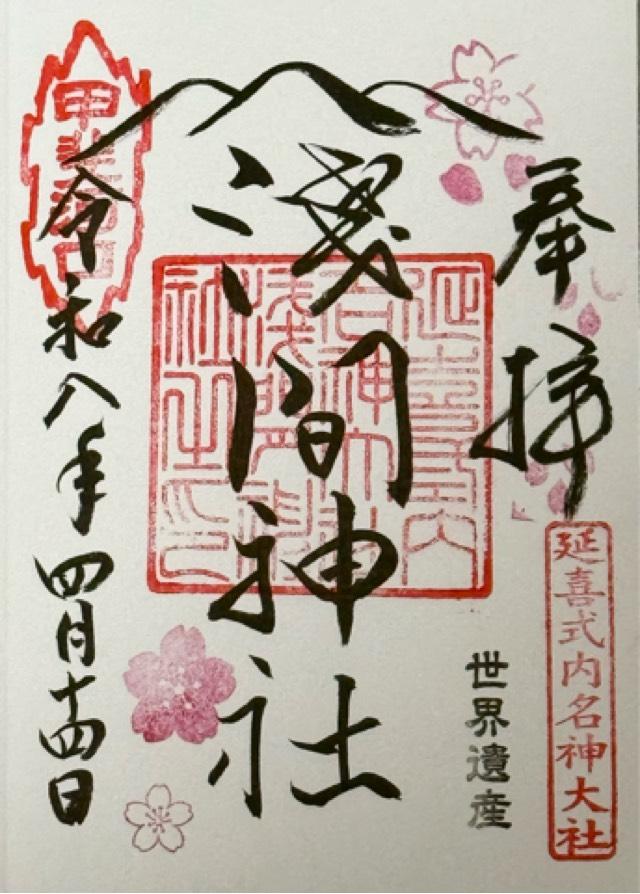 奉拝
延喜式内名神大社
世界遺産
淺間神社
延喜式内
名神大社
淺間神
社之印
令和八年四月十四日